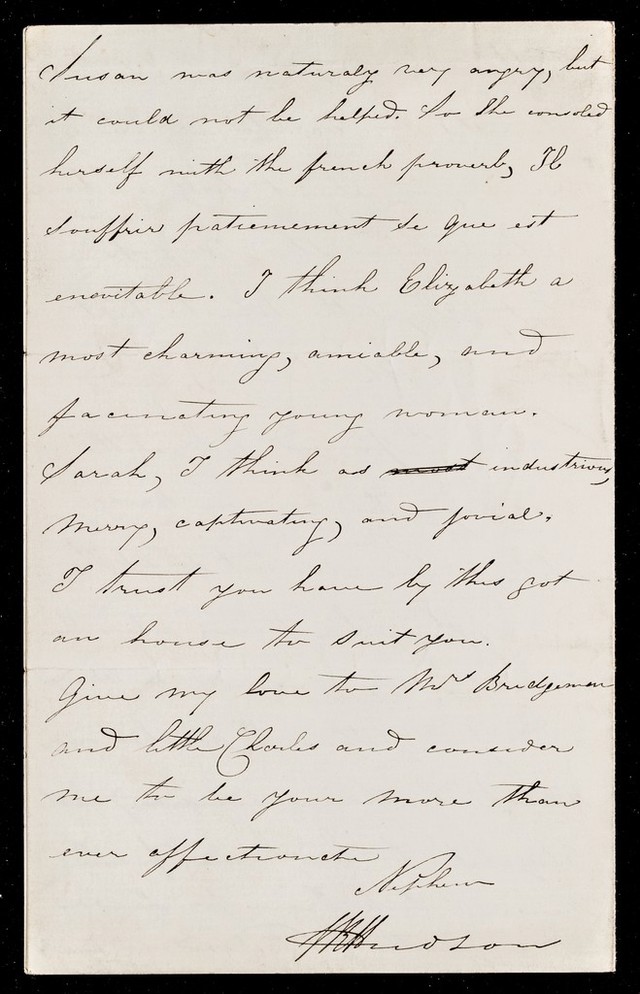 Susan was naturaly very angry, but
it could not be helped. So She consoled
herself with the french proverb, Il
souffrir patiemement se que est
enevitable. I think Elizabeth a
most charming, amiable, and
facinating young woman.
Sarah, I think as most industrious,
Merry, captivating, and jovial.
I trust you have by this got
an house to suit you.
Give my love to Mrs Bridgeman
and little Charles and consider
me to be your more than
ever affectionate
Nephew
Hudson